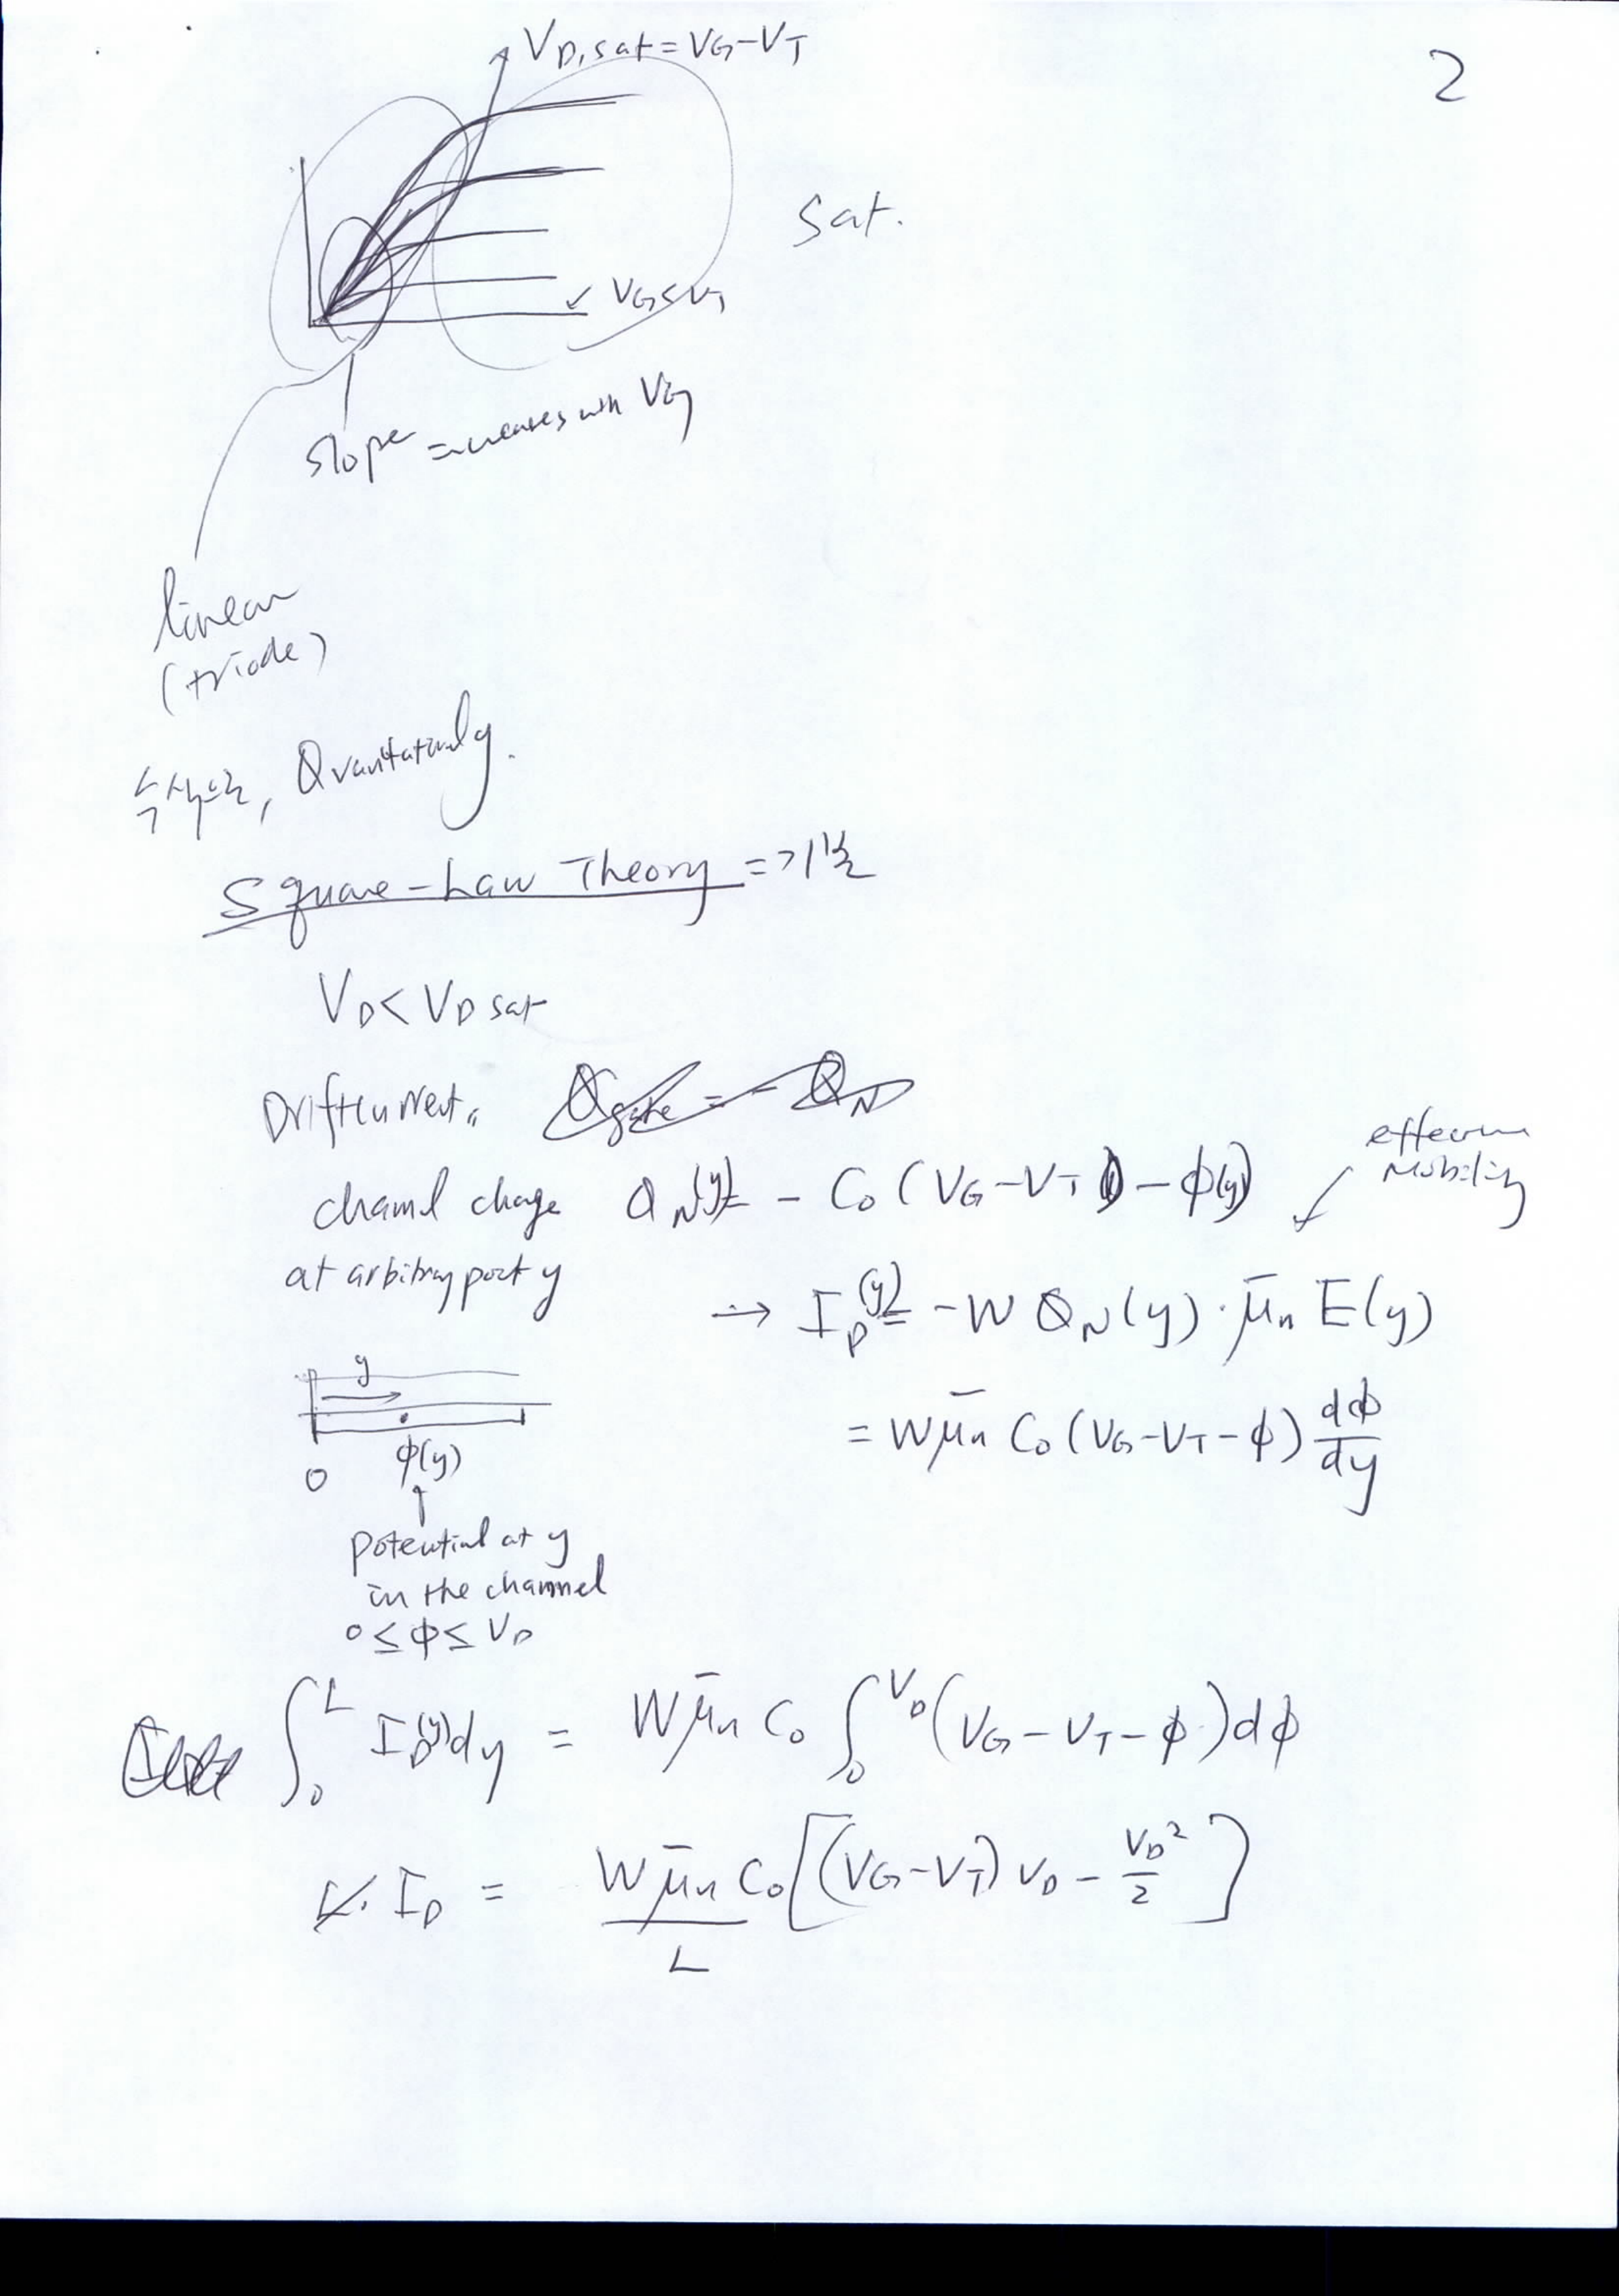 2
V_D,sat = V_G - V_T
Sat.
↙ V_G < V_T
slope increases with V_G
linear
(triode)
수식으로, Quantitatively.
Square-Law Theory =>
V_D < V_D sat
Drift current.
channel charge Q_N(y) = - C_o (V_G - V_T - ϕ(y))
at arbitrary point y
effective
mobility
→ I_D(y) = -W Q_N(y) · μ̄_n E(y)
= W μ̄_n C_o (V_G - V_T - ϕ) dϕ/dy
y
0 ϕ(y)
potential at y
in the channel
0 ≤ ϕ ≤ V_D
∫_0^L I_D(y) dy = W μ̄_n C_o ∫_0^V_D (V_G - V_T - ϕ) dϕ
L · I_D = W μ̄_n C_o / L [(V_G - V_T) V_D - V_D²/2]